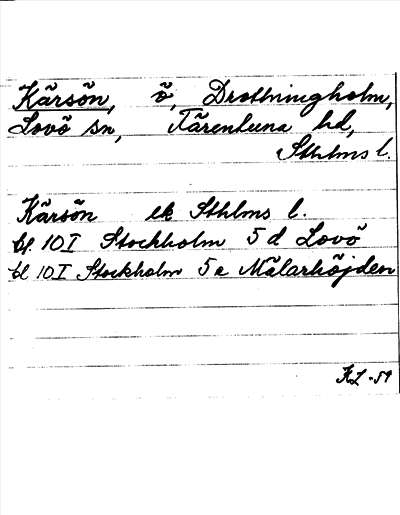 Kärsön, ö, Drottningholm,
Lovö sn, Färentuna hd,
Sthlms l.
Kärsön ek Sthlms l.
bl. 10 I Stockholm 5 d Lovö
bl 10 I Stockholm 5 e Mälarhöjden
KL-59